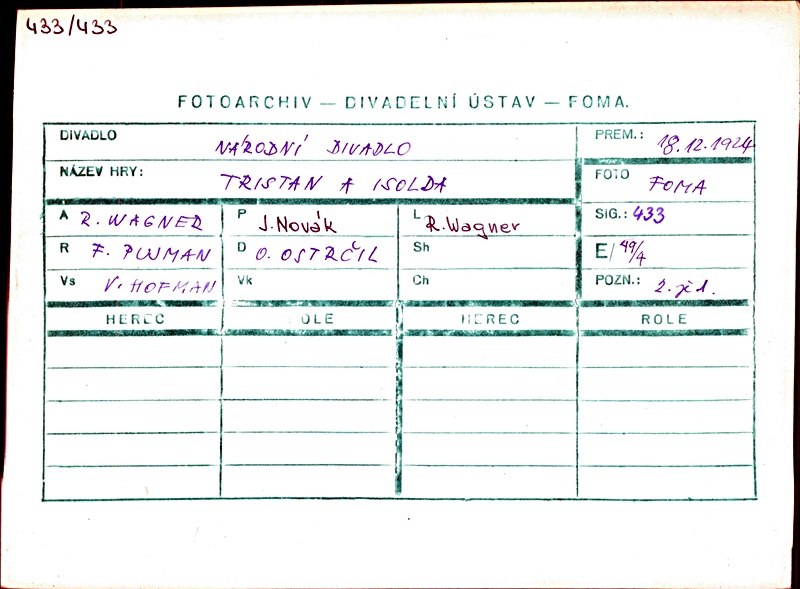 433/433
FOTOARCHIV — DIVADELNÍ ÚSTAV — FOMA.
DIVADLO NÁRODNÍ DIVADLO PREM.: 18.12.1924
NÁZEV HRY: TRISTAN A ISOLDA FOTO FOMA
A R. WAGNER P J. Novák L R. Wagner SIG.: 433
R F. PUJMAN D O. OSTRČIL Sh E/49/4
Vs V. HOFMAN Vk Ch POZN.: 2. jed.
HEREC OLE HEREC ROLE